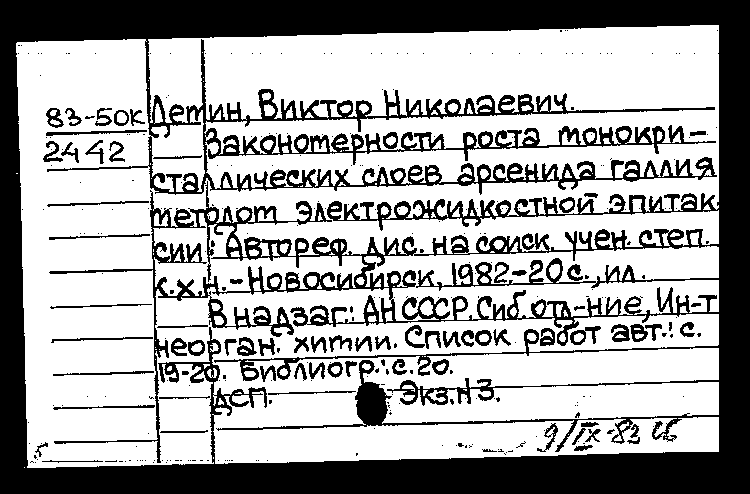 83-50К Детин, Виктор Николаевич.
2442 Закономерности роста монокри-
сталлических слоев арсенида галлия
методом электрожидкостной эпитак-
сии: Автореф. дис. на соиск. учен. степ.
к.х.н. - Новосибирск, 1982. - 20 с., ил.
В надзаг.: АН СССР. Сиб. отд-ние, Ин-т
неорган. химии. Список работ авт.: с.
19-20. Библиогр.: с. 20.
ДСП. Экз. N 3.
9/IX-83